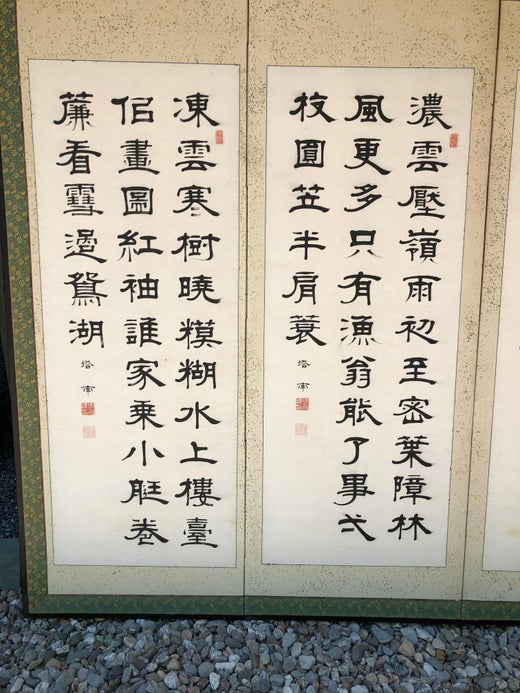 濃雲壓嶺雨初至密葉障林
風更多只有漁翁能了事弌
枝圓笠半肩蓑
凍雲寒樹曉糢糊水上樓臺
佀畫圖紅袖誰家乘小艇卷
簾看雪過鴛湖